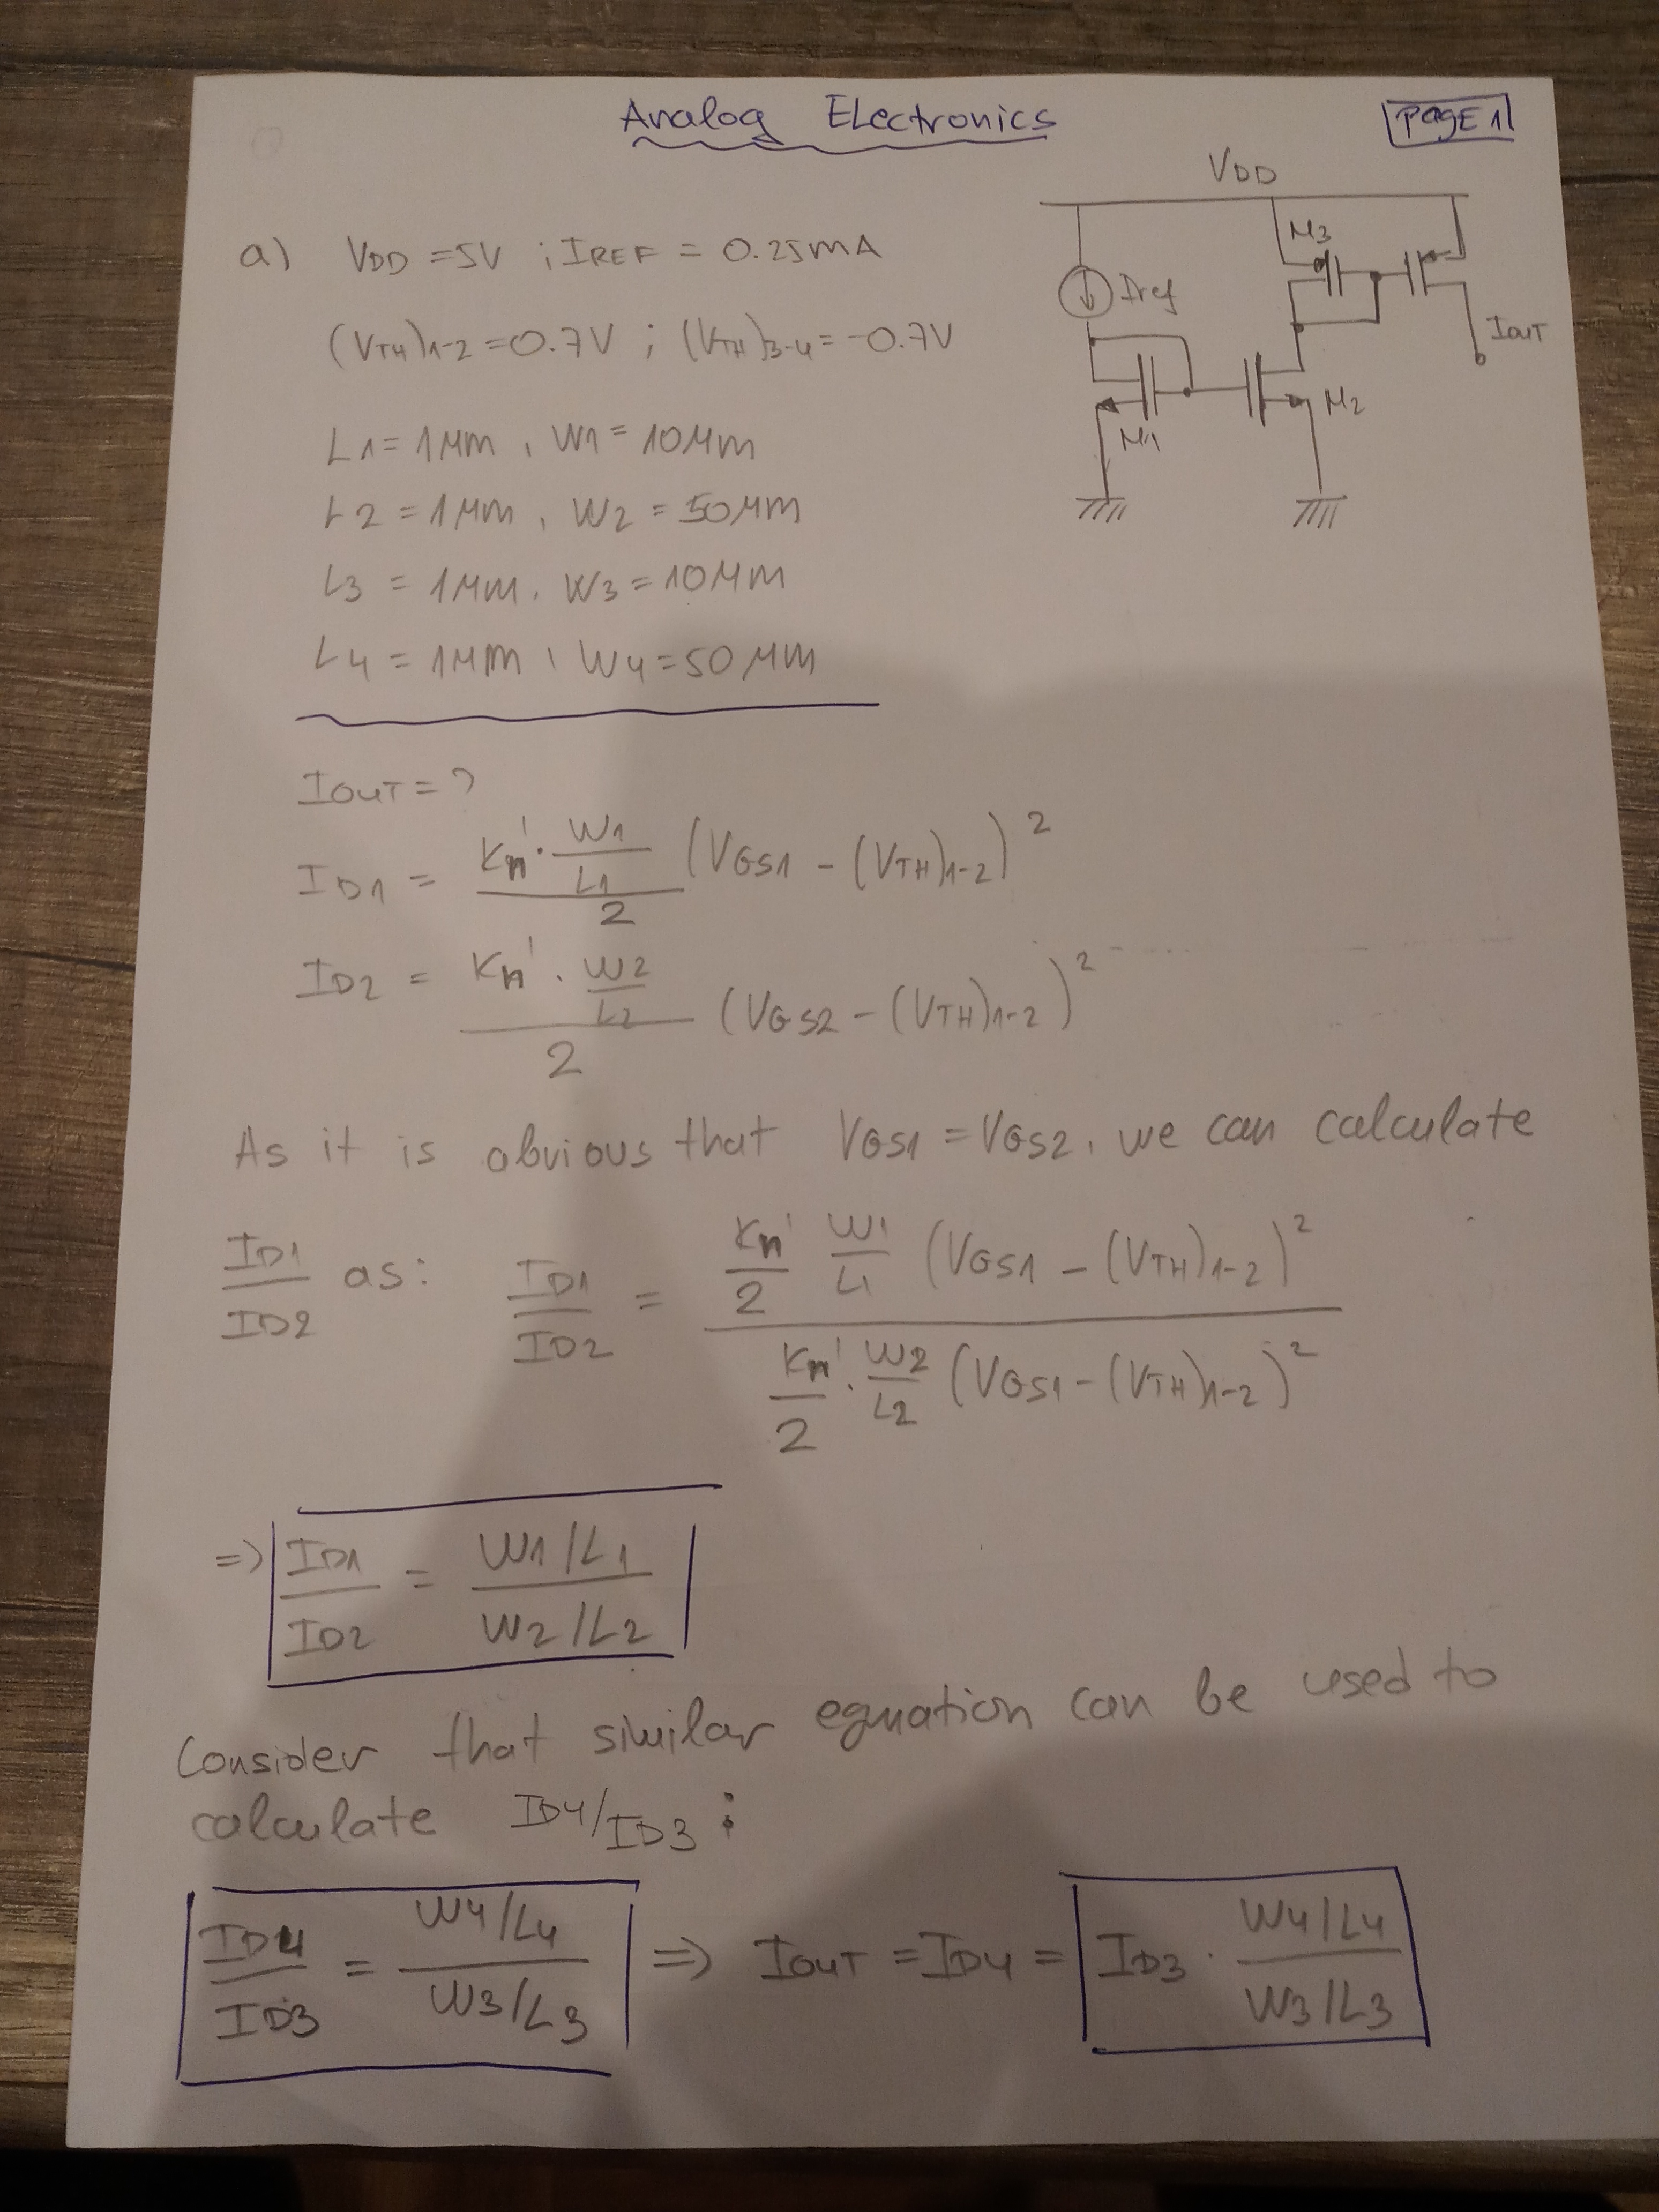 Analog Electronics
PAGE 1
VDD
M3
Iref
Iout
M1
M2
a) VDD = 5V ; IREF = 0.25mA
(VTH)1-2 = 0.7V ; (VTH)3-4 = -0.7V
L1 = 1μm , W1 = 10μm
L2 = 1μm , W2 = 50μm
L3 = 1μm , W3 = 10μm
L4 = 1μm , W4 = 50μm
IOUT = ?
ID1 = (Kn' · W1/L1)/2 (VGS1 - (VTH)1-2)²
ID2 = (Kn' · W2/L2)/2 (VGS2 - (VTH)1-2)²
As it is obvious that VGS1 = VGS2, we can calculate
ID1/ID2 as: ID1/ID2 = (Kn'/2 W1/L1 (VGS1 - (VTH)1-2)²)/(Kn'/2 · W2/L2 (VGS1 - (VTH)1-2)²)
=> ID1/ID2 = (W1/L1)/(W2/L2)
Consider that similar equation can be used to
calculate ID4/ID3 :
ID4/ID3 = (W4/L4)/(W3/L3) => IOUT = ID4 = ID3 · (W4/L4)/(W3/L3)